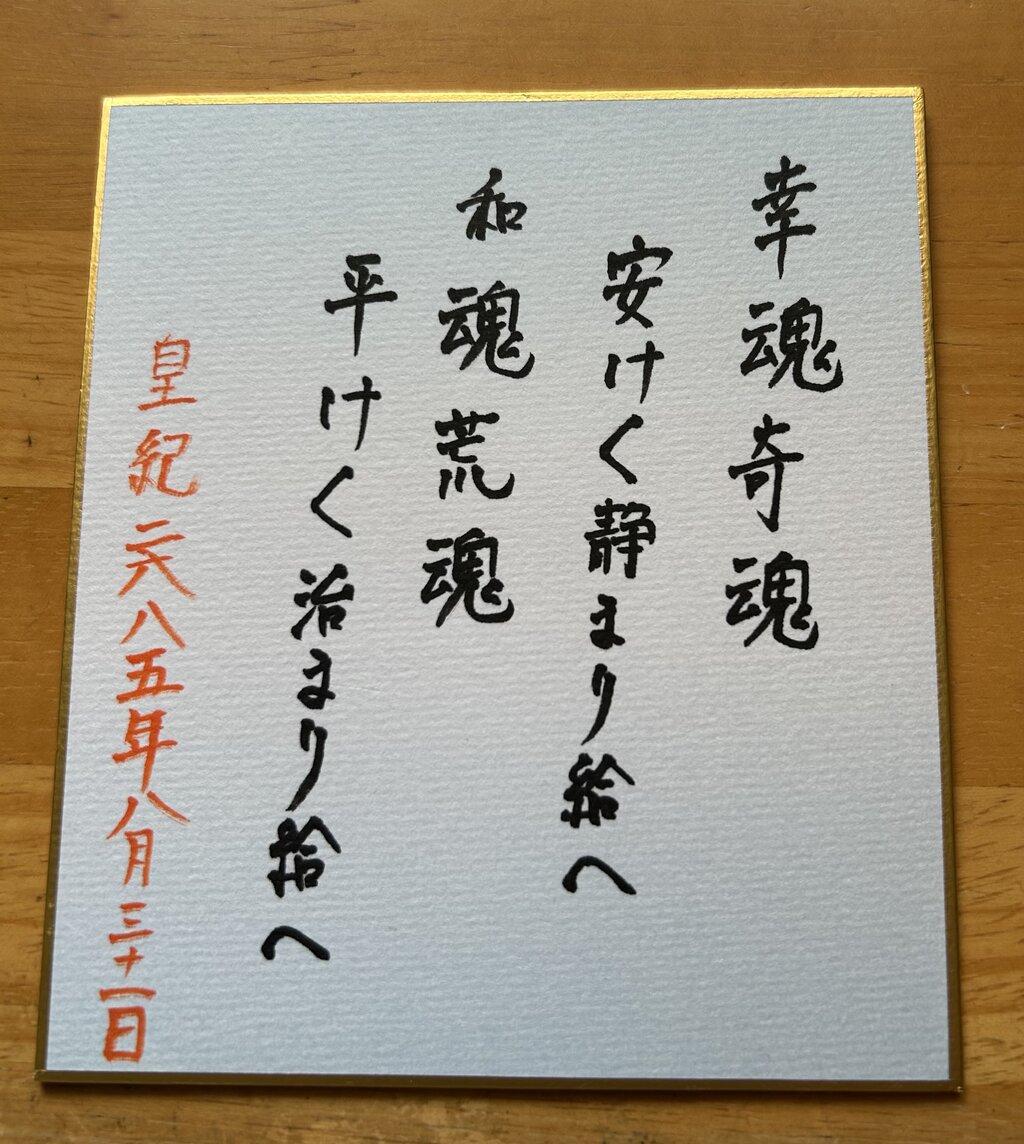 幸魂奇魂
安けく静まり給へ
和魂荒魂
平けく治まり給へ
皇紀二六八五年八月三十一日